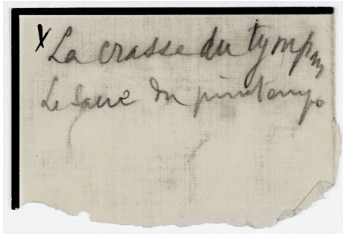 X La crasse du tympan
Le Sacre du printemps